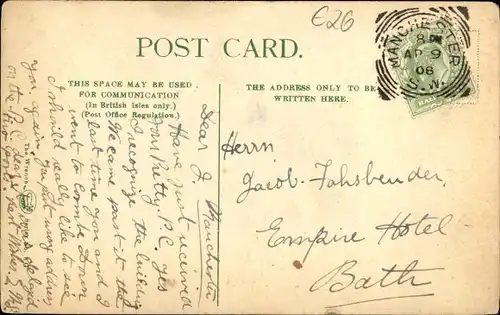 £26
POST CARD.
MANCHESTER
8 PM
AP 9
06
S.W.
THIS SPACE MAY BE USED
FOR COMMUNICATION
(In British Isles only.)
(Post Office Regulation.)
THE ADDRESS ONLY TO BE
WRITTEN HERE.
Manchester
Dear J.
Have just received
your Pretty P.C. yes
I recognize the building
We came past it the
last time you and I
went to Combe Down
I should really like to see
you again.
Herrn
Jacob Fahsbender
Empire Hotel
Bath